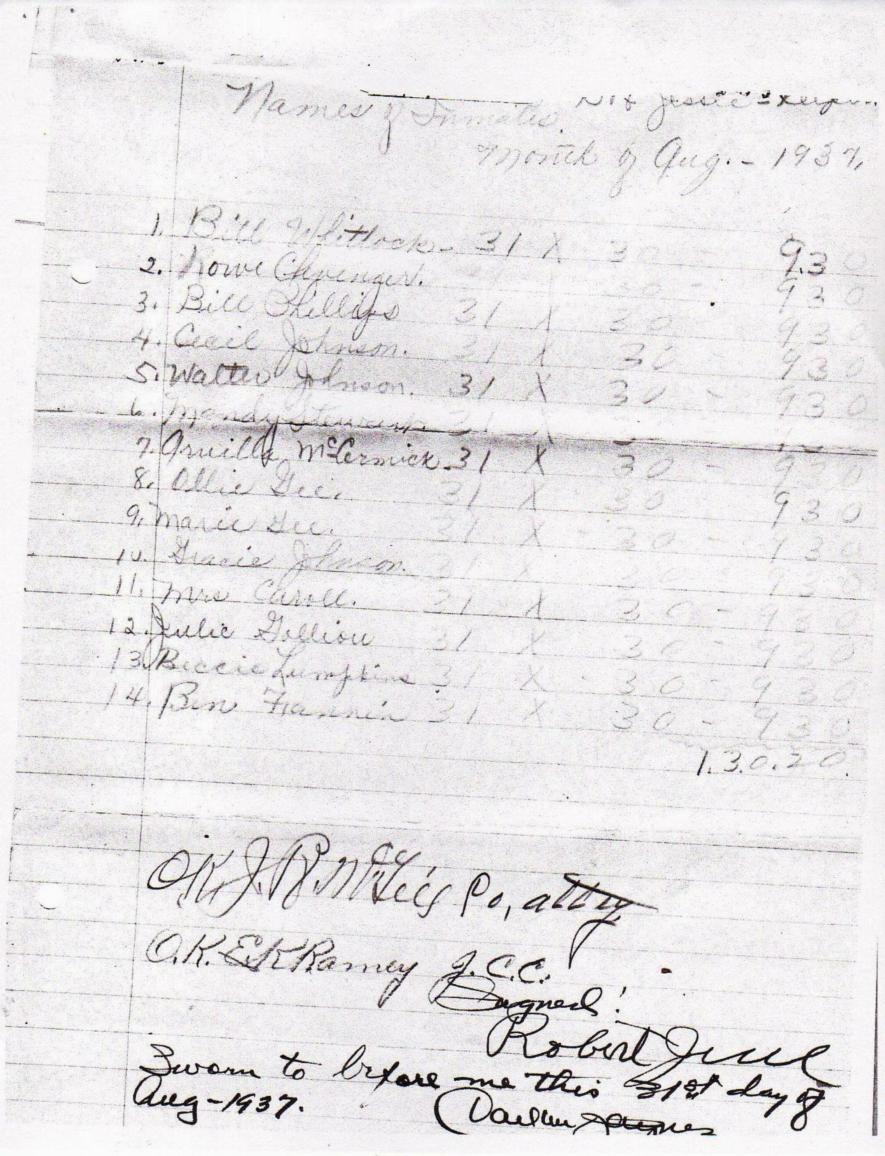 Names of Inmates.
Month of Aug. - 1937.
1. Bill Whitlock - 31 X 30 9.30
2. Clevenger. 30 - 930
3. Bill Phillips 31 X 30 - 930
4. Cecil Johnson. 31 X 30 930
5. Walter Johnson. 31 X 30 - 930
6. Mandy Stewart. 31
7. McCormick - 31 X 30 - 930
8. Ollie Gee. 31 X 30 930
9. Marie Gee. 31 X 30 - 930
10. Gracie Johnson. 31 X 30 930
11. Mrs Caroll. 31 X 30 - 930
12. Julie 31 X 30 - 930
13. Lumpkins 31 X - 30 - 930
14. Ben Fannin 31 X 30 - 930
1.30.20.
O.K. J. R. Co, atty
O.K. E K Ramey J.C.C.
Signed!
Robert
Sworn to before me this 31st day of
Aug - 1937.